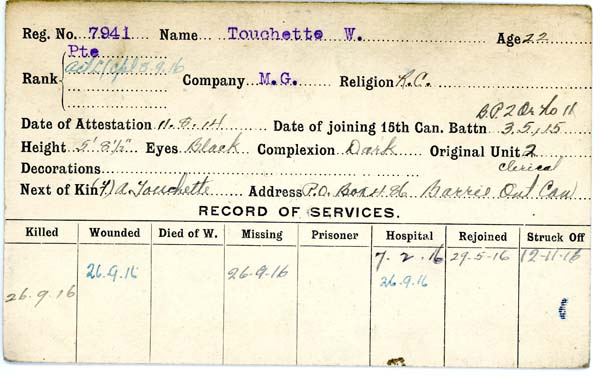 Reg. No. 7941 Name Touchette W. Age 22
Pte
Rank act L/Cpl 5.9.16 Company M.G. Religion R.C.
B.P.2 Or No 11
Date of Attestation 11.8.14 Date of joining 15th Can. Battn 3.5.15
Height 5' 8½" Eyes Black Complexion Dark Original Unit 2
Decorations clerical
Next of Kin (f) A. Touchette Address P.O. Box 486 Barrie Ont Can
RECORD OF SERVICES.
Killed Wounded Died of W. Missing Prisoner Hospital Rejoined Struck Off
7.2.16 29-5-16 12-11-16
26.9.16 26-9-16 26.9.16
26.9.16